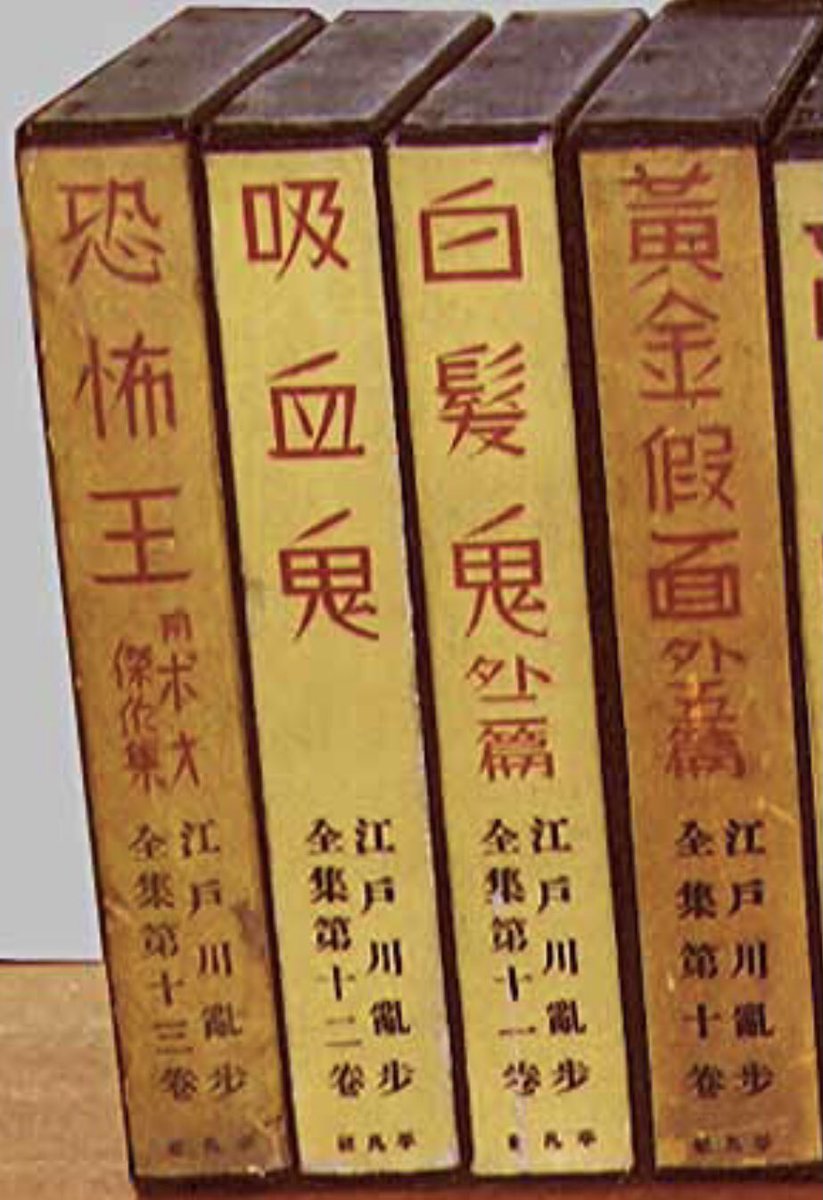 黃金假面 外五篇
江戶川亂步
全集第十卷
平凡社
白髮鬼 外一篇
江戶川亂步
全集第十一卷
平凡社
吸血鬼
江戶川亂步
全集第十二卷
平凡社
恐怖王
附ポオ
傑作集
江戶川亂步
全集第十三卷
平凡社